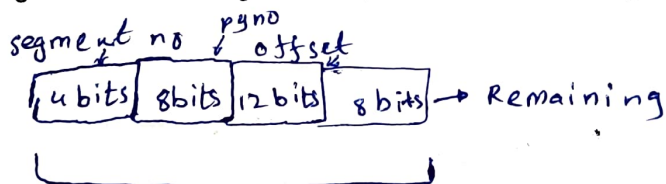 pgno
segment no
offset
4 bits 8bits 12bits 8 bits → Remaining